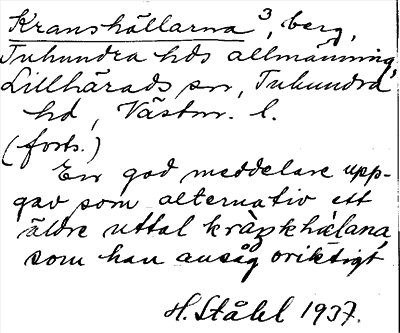 Kranshällarna³, berg,
Tuhundra hds allmänning,
Lillhärads sn, Tuhundra
hd, Västm. l.
(forts.)
En god meddelare upp-
gav som alternativ ett
äldre uttal
som han ansåg oriktigt
H. Ståhl 1937.